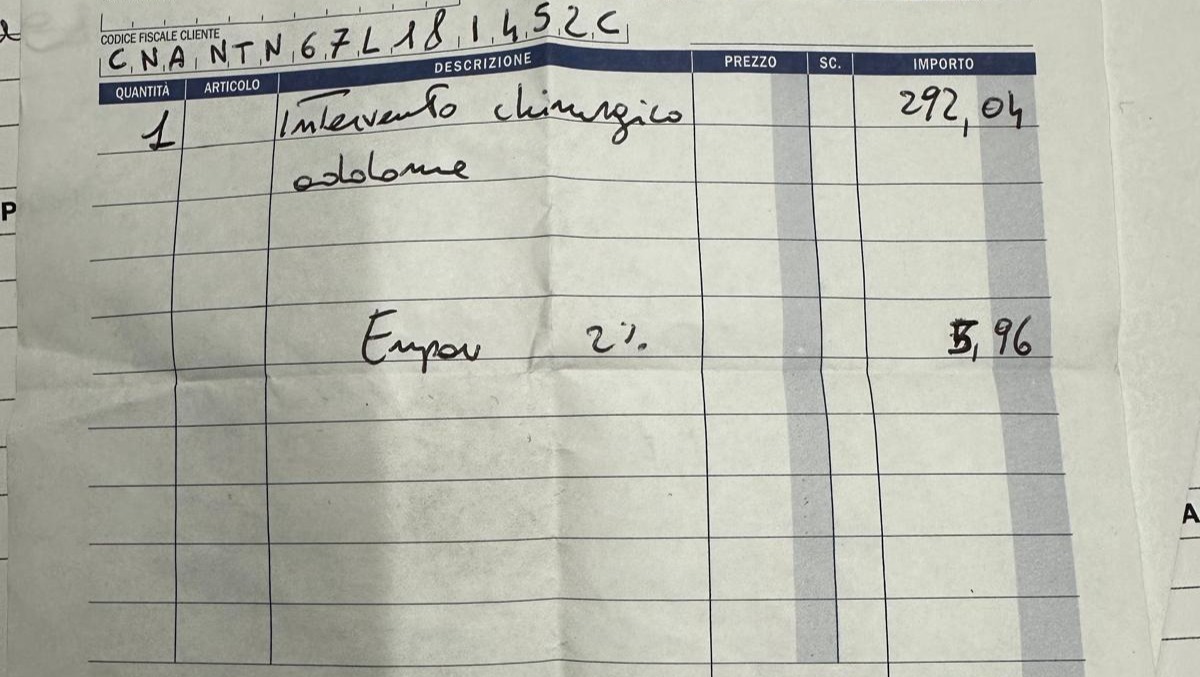 CODICE FISCALE CLIENTE
CNANTN67L18I452C
QUANTITÀ ARTICOLO DESCRIZIONE PREZZO SC. IMPORTO
1 Intervento chirurgico 292,04
addome
Enpav 2% 5,96
P
A